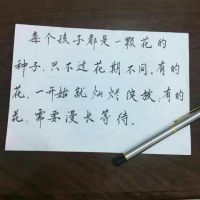 每个孩子都是一颗花的
种子,只不过花期不同.有的
花,一开始就灿烂绽放,有的
花,需要漫长等待.